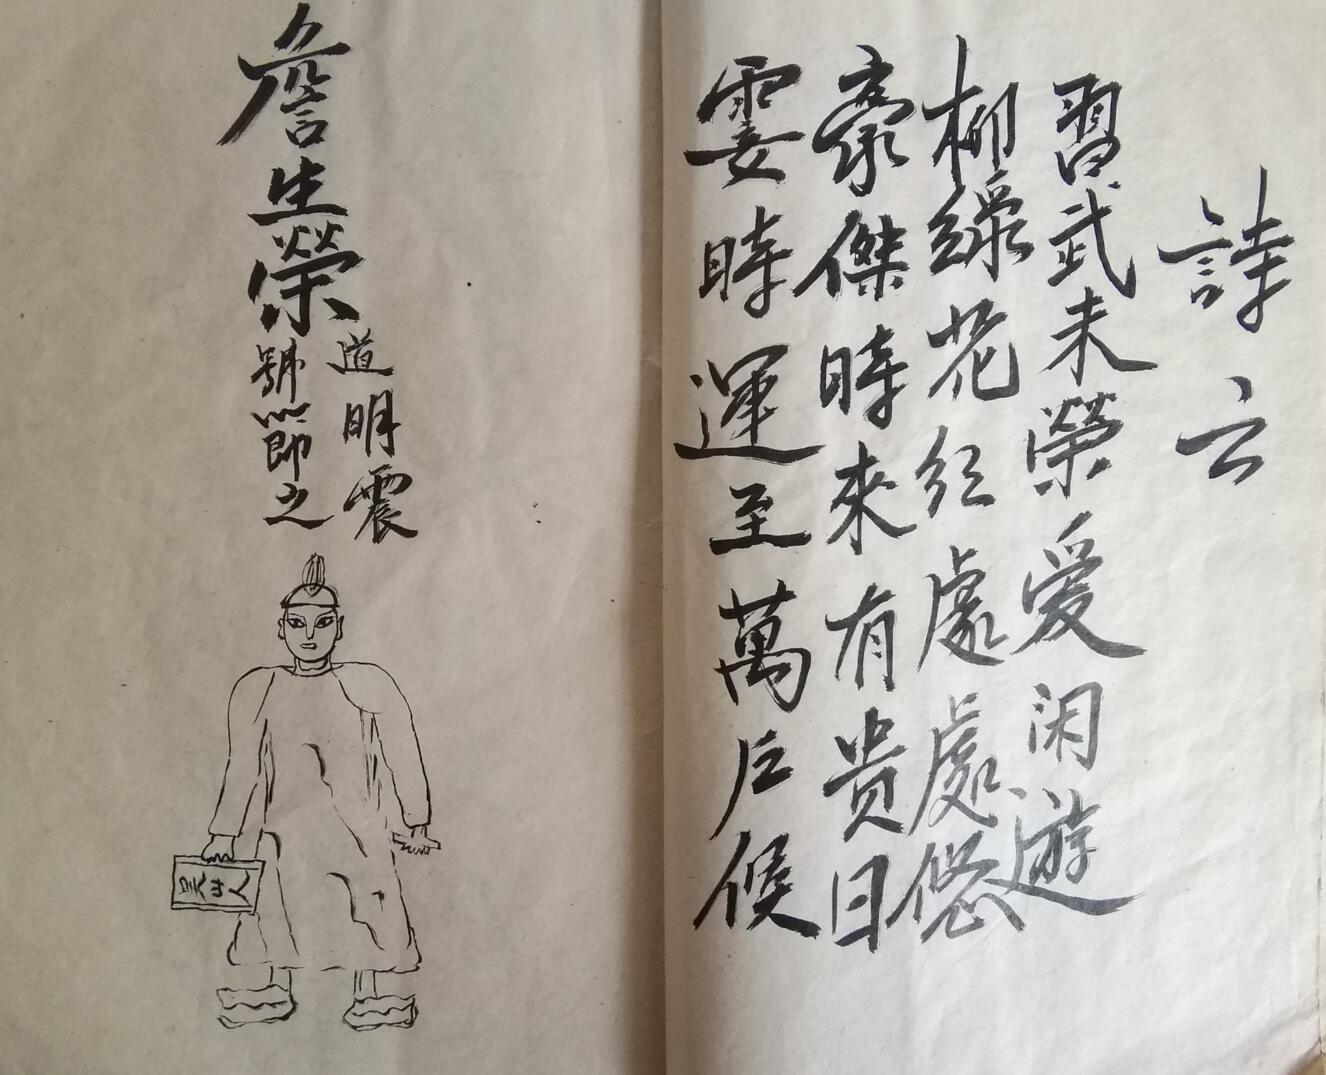 詩云
習武未榮愛闲遊
柳綠花红處處悠
豪傑時來有貴日
霎時運至萬户候
詹生榮
道明震
號節之